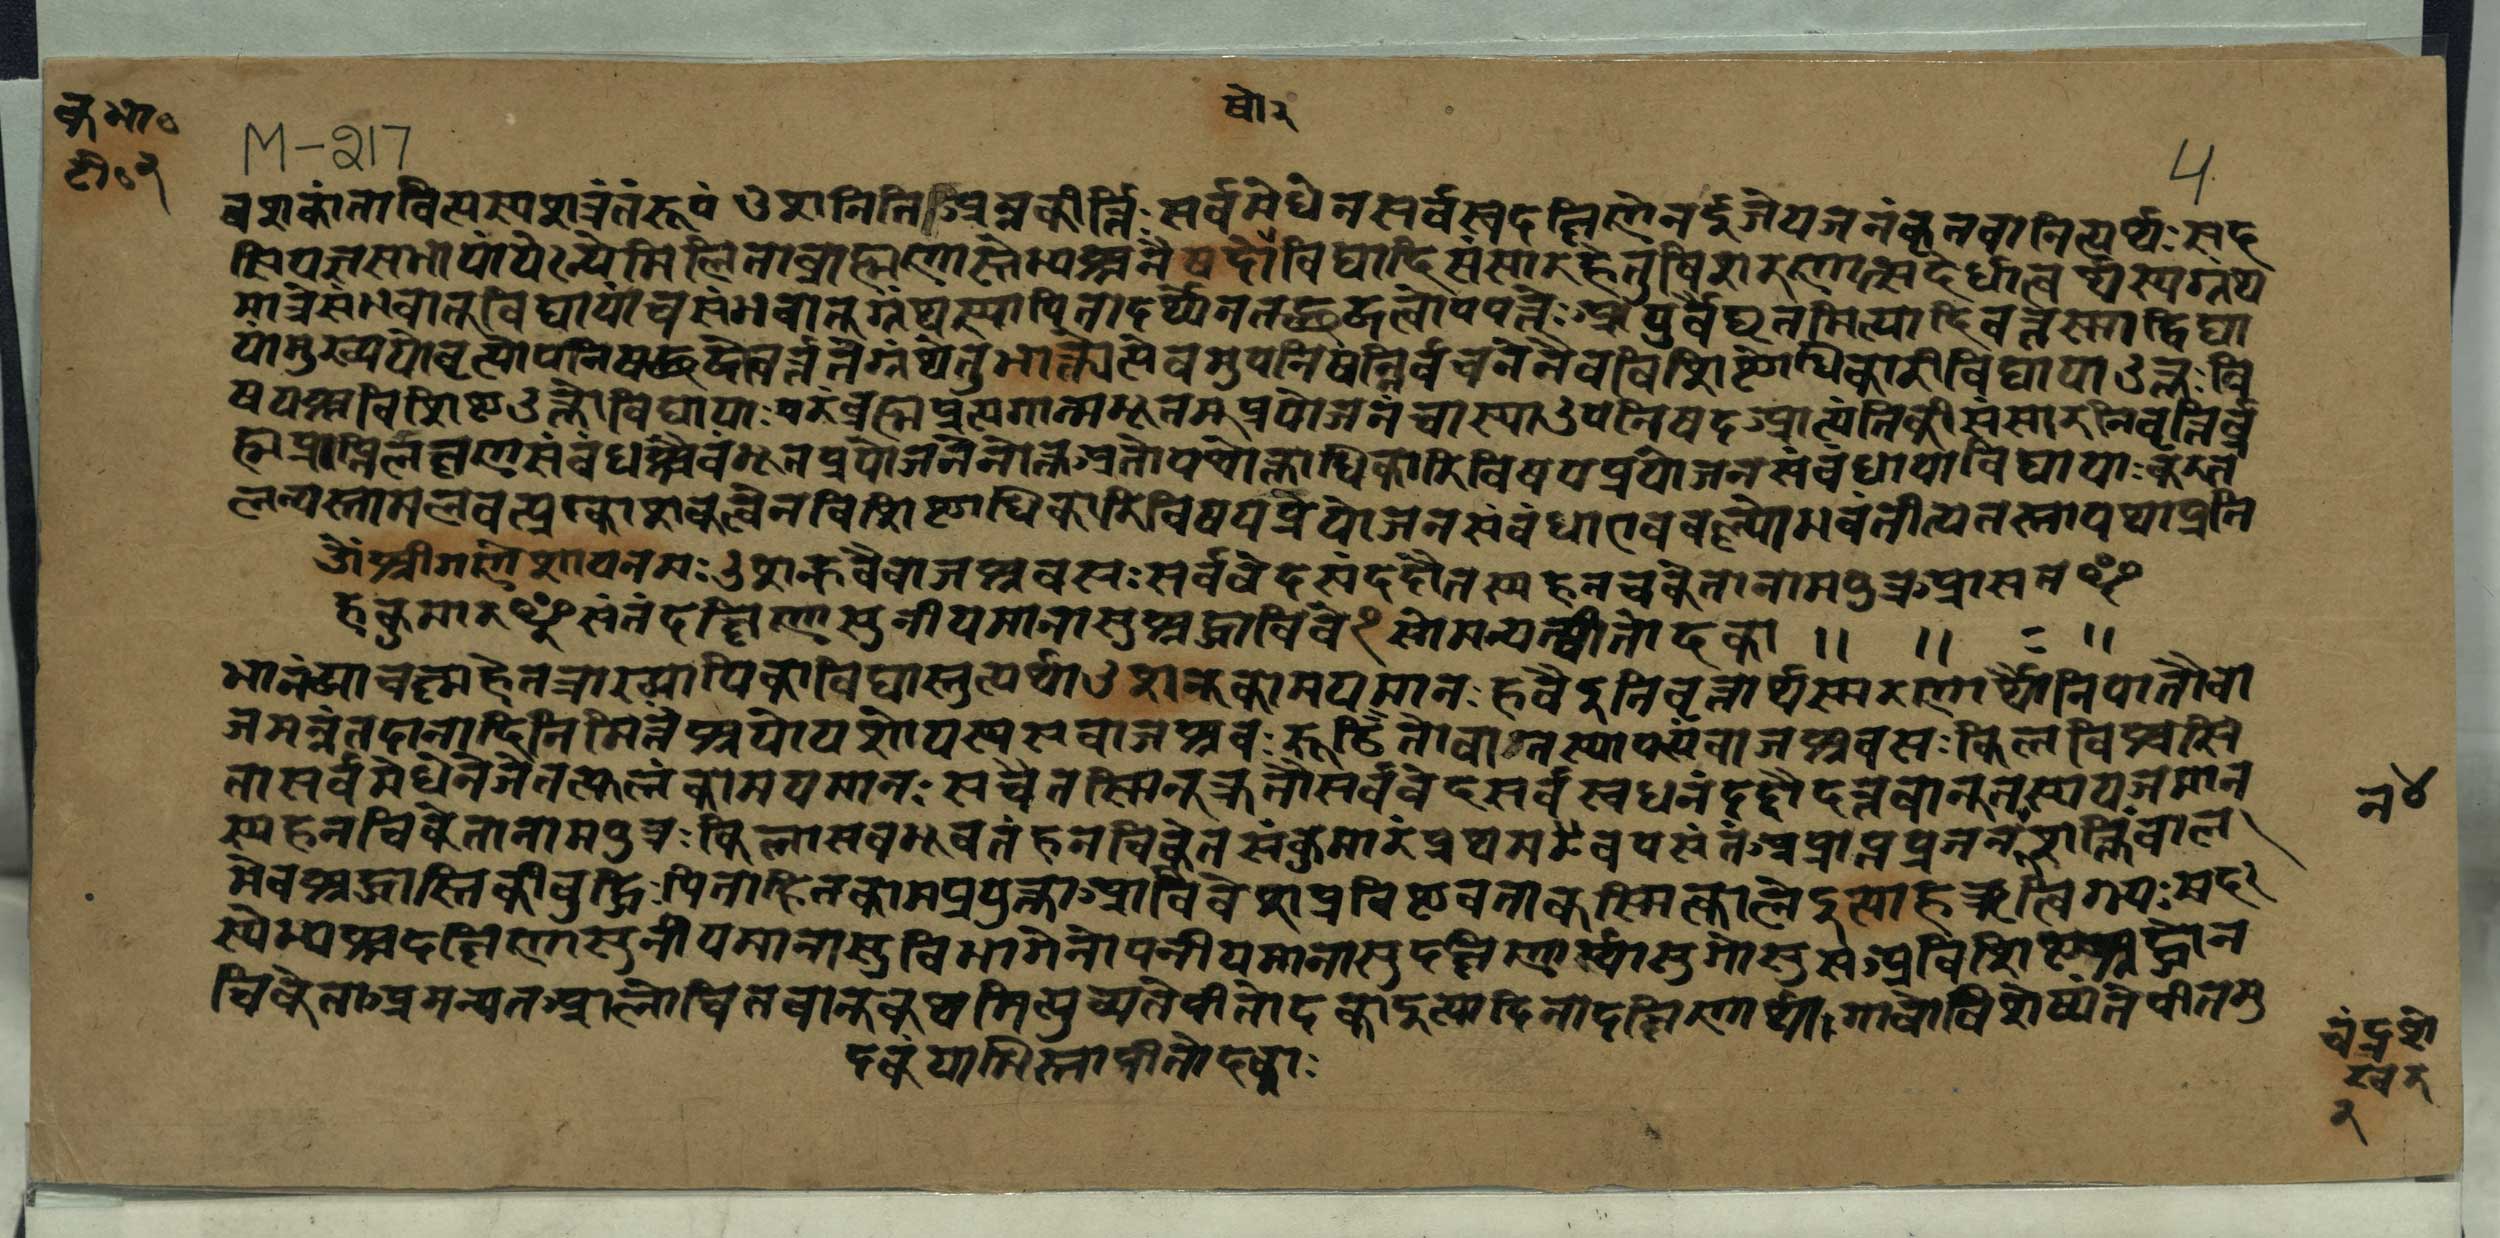 क भा०
टी० २
M-217
षो २
4
वशकांतावित्यस्यशत्रंतंरूपं उशनितिअन्नकीर्त्तिः सर्वमेधेनसर्वस्वदक्षिणेनर्इजेयजनंकृतवानित्यर्थः सद
सियज्ञसभायांयेऽन्येमिलिताब्राह्मणास्तेभ्यश्चनै
मात्रेसंभवातुविद्यायांचसंभवातुग्रंथस्यापितादर्थ्येनतच्छब्दत्वोपपत्तेः आयुर्वैघृतमित्यादिवत्तस्माद्विद्या
यांमुख्ययावृत्त्योपनिषच्छब्दोवर्त्ततेग्रंथेतुभाक्त्येत्येवमुपनिषन्निर्वचनेनैवविशिष्टाधिकारीविद्यायाउक्तः वि
षयश्चविशिष्टउक्तोविद्यायाः परंब्रह्मप्रत्यगात्मभूतम्प्रयोजनंचास्याउपनिषदआत्यंतिकीसंसारनिवृत्तिर्ब्र
ह्मप्राप्तिर्लक्षणसंबंधश्चैवंभूतप्रयोजनेनोक्तअतोयथोक्ताधिकारिविषयप्रयोजनसंबंधायाविद्यायाः करत
लन्यस्तामलवत्प्रकाशकत्वेनविशिष्टाधिकारिविषयप्रयोजनसंबंधाएववल्ल्योभवंतीत्यतस्तायथाप्रति
ओंश्रीगणेशायनमः उशन्हवैवाजश्रवसः सर्ववेदसंददौतस्यहनचकेतानामपुत्रआसतꣳ
हकुमारꣳसंतंदक्षिणासुनीयमानासुश्रद्धाविवे१ सोमन्यतपीतोदका ॥ ॥ = ॥
भानंव्याचक्ष्महेतत्राख्यायिकाविद्यास्तुत्यर्थाउशन्कामयमानः हवैइतिवृत्तार्थस्मरणार्थौनिपातौवा
जमन्नंतद्दानादिनिमित्तंश्रवोयशोयस्यसवाजश्रवः रूढितोवातस्यापत्यंवाजश्रवसः किलविश्वजि
तासर्वमेधेनेजेतत्फलंकामयमानः सचैतस्मिन्क्रतौसर्ववेदसर्वस्वधनंददौदत्तवान्तस्ययजमान
स्यहनचिकेतानामपुत्रः किलासबभूवतंहनचिकेतसंकुमारंप्रथमवयसंतंअप्राप्तप्रजननशक्तिंबाल
मेवश्रद्धास्तिकीबुद्धिः पितुर्हितकामप्रयुक्ताआविवेशप्रविष्टवतीकस्मिन्कालेइत्याहऋत्विग्भ्यः सद
स्येभ्यश्चदक्षिणासुनीयमानासुविभागेनोपनीयमानासुदक्षिणार्थासुगोसुसआविशिष्टश्रद्धोन
चिकेताअमन्यतआलोचितवान्कथमित्युच्यतेपीतोदकाइत्यादिनादक्षिणार्था गावोविशेष्यंतेपीतमु
दकंयाभिस्तापीतोदकाः
न४
चंद्रशे
खर
२